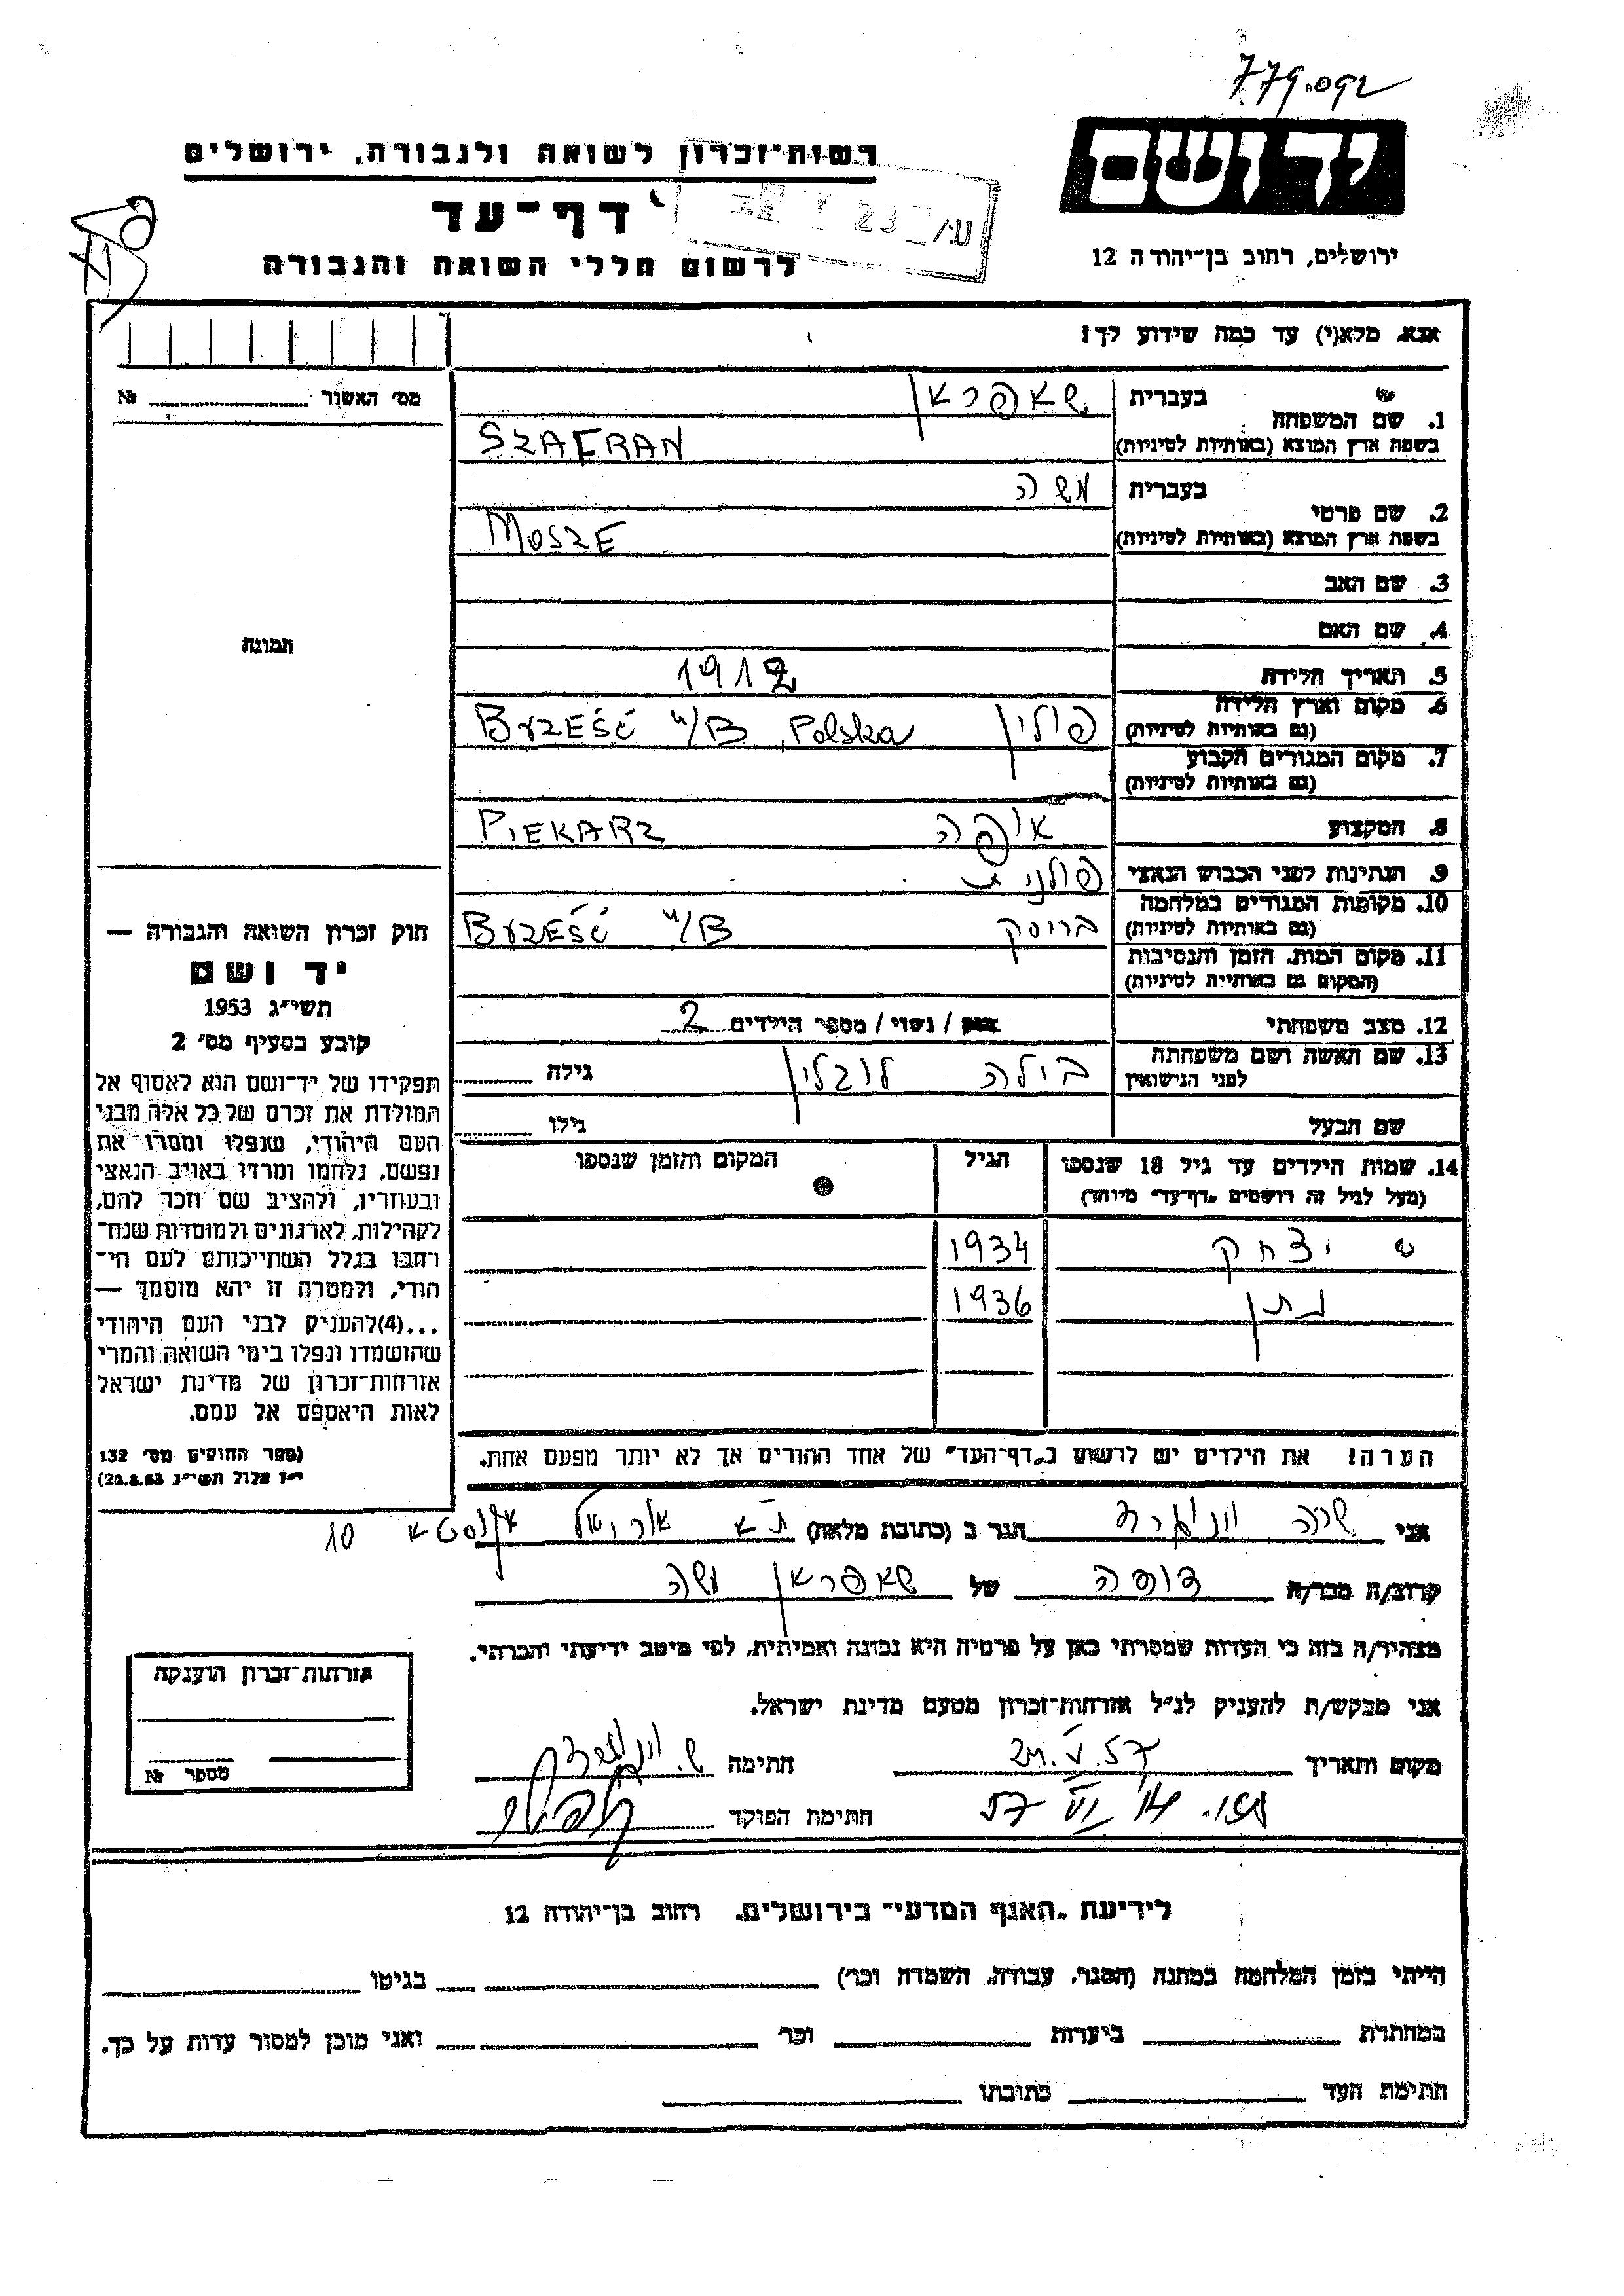 779.092
יד ושם
רשות־זכרון לשואה ולגבורה, ירושלים
דף־עד
לרשום חללי השואה והגבורה
ירושלים, רחוב בן־יהודה 12
אנא, מלא(י) עד כמה שידוע לך!
מס׳ האשור № 
1. שם המשפחה
בעברית שאפראן
בשפת ארץ המוצא (באותיות לטיניות) SZAFRAN
2. שם פרטי
בעברית משה
בשפת ארץ המוצא (באותיות לטיניות) MOSZE
3. שם האב
4. שם האם
5. תאריך הלידה 1912
6. מקום וארץ הלידה (גם באותיות לטיניות) פולין Brześć n/B, Polska
7. מקום המגורים הקבוע (גם באותיות לטיניות)
8. המקצוע אופה PIEKARZ
9. הנתינות לפני הכבוש הנאצי פולנית
10. מקומות המגורים במלחמה (גם באותיות לטיניות) בריסק Brześć n/B
11. מקום המות, הזמן והנסיבות (המקום גם באותיות לטיניות)
12. מצב משפחתי / נשוי / מספר הילדים 2
13. שם האשה ושם משפחתה לפני הנישואין בילה לובלין גילה
שם הבעל גילו
14. שמות הילדים עד גיל 18 שנספו הגיל המקום והזמן שנספו
(מעל לגיל זה רושמים „דף־עד״ מיוחד)
יצחק 1934
נתן 1936
הערה! את הילדים יש לרשום ב„דף־העד״ של אחד ההורים אך לא יותר מפעם אחת.
תמונה
חוק זכרון השואה והגבורה —
יד ושם
תשי״ג 1953
קובע בסעיף מס׳ 2
תפקידו של יד־ושם הוא לאסוף אל
המולדת את זכרם של כל אלה מבני
העם היהודי, שנפלו ומסרו את
נפשם, נלחמו ומרדו באויב הנאצי
ובעוזריו, ולהציב שם וזכר להם,
לקהילות, לארגונים ולמוסדות שנח־
רחבו בגלל השתייכותם לעם הי־
הודי, ולמטרה זו יהא מוסמך —
...(4)להעניק לבני העם היהודי
שהושמדו ונפלו בימי השואה והמרי
אזרחות־זכרון של מדינת ישראל
לאות היאספם אל עמם.
(ספר החוקים מס׳ 132
י״ז אלול תשי״ג 28.8.53)
אני שרה הגר ב (כתובת מלאה) ת״א 10
קרוב/ה מכר/ה של שאפראן משה
מצהיר/ה בזה כי העדות שמסרתי כאן על פרטיה היא נכונה ואמיתית, לפי מיטב ידיעתי והכרתי.
אני מבקש/ת להעניק לנ״ל אזרחות־זכרון מטעם מדינת ישראל.
מקום ותאריך 57 חתימה
57 חתימת הפוקד
אזרחות־זכרון הוענקה
מספר №
לידיעת „האגף המדעי״ בירושלים, רחוב בן־יהודה 12
הייתי בזמן המלחמה במחנה (הסגר, עבודה, השמדה וכו׳) בגיטו
במחתרת ביערות וכו׳ ואני מוכן למסור עדות על כך.
חתימת העד כתובתו